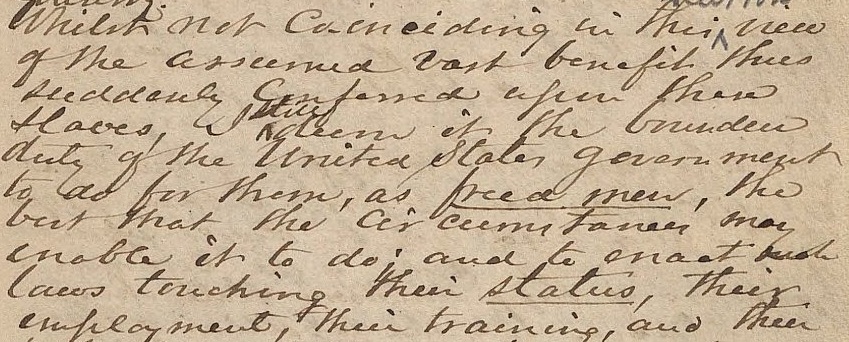 Whilst not Coinciding in this view
of the assumed vast benefit thus
suddenly Conferred upon these
slaves, I still deem it the bounden
duty of the United States government
to do for them, as freed men, the
best that the circumstances may
enable it to do; and to enact such
laws touching their status, their
employment, their training, and their